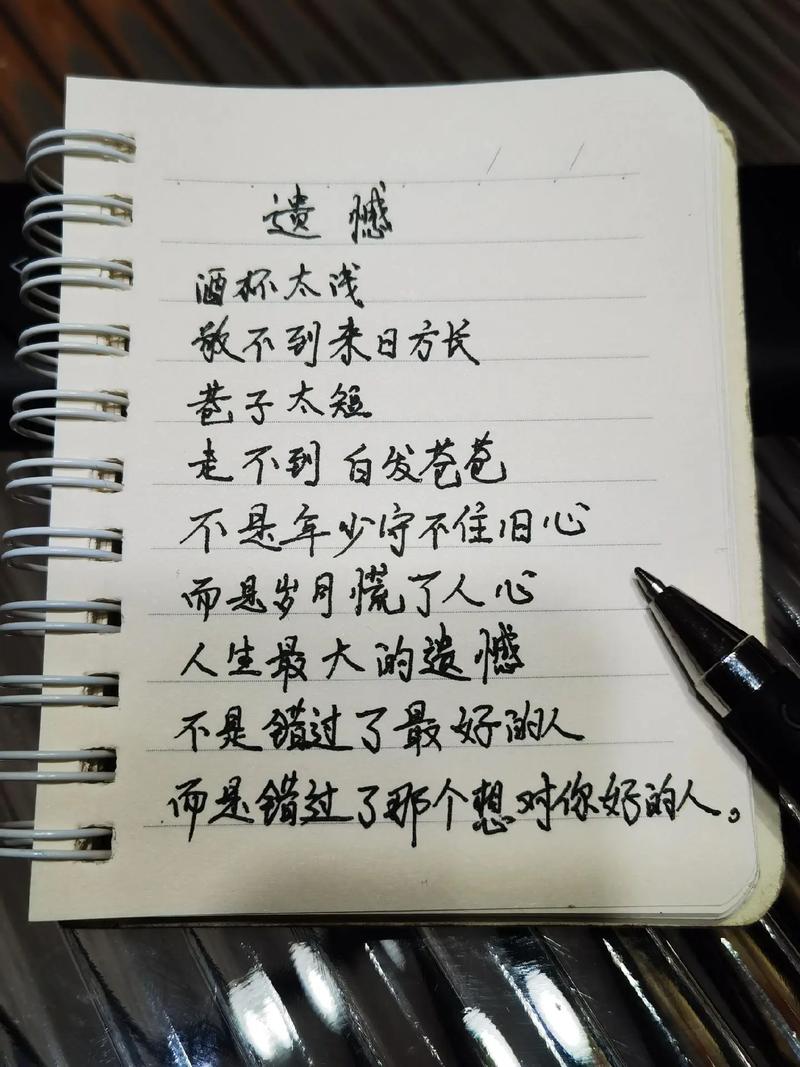 遗憾
酒杯太浅
敬不到来日方长
巷子太短
走不到白发苍苍
不是年少守不住旧心
而是岁月慌了人心
人生最大的遗憾
不是错过了最好的人
而是错过了那个想对你好的人。